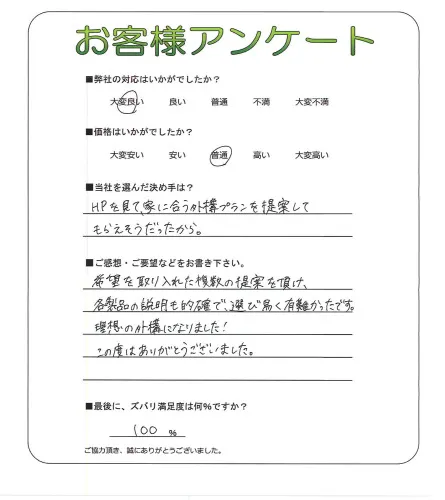 お客様アンケート
■弊社の対応はいかがでしたか？
大変良い 良い 普通 不満 大変不満
■価格はいかがでしたか？
大変安い 安い 普通 高い 大変高い
■当社を選んだ決め手は？
HPを見て、家に合う外構プランを提案して
もらえそうだったから。
■ご感想・ご要望などをお書き下さい。
希望を取り入れた複数の提案を頂け、
各製品の説明も的確で、選び易く有難かったです。
理想の外構になりました！
この度はありがとうございました。
■最後に、ズバリ満足度は何％ですか？
100 %
ご協力頂き、誠にありがとうございました。